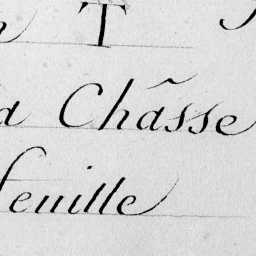 T
la Chãsse
feuille